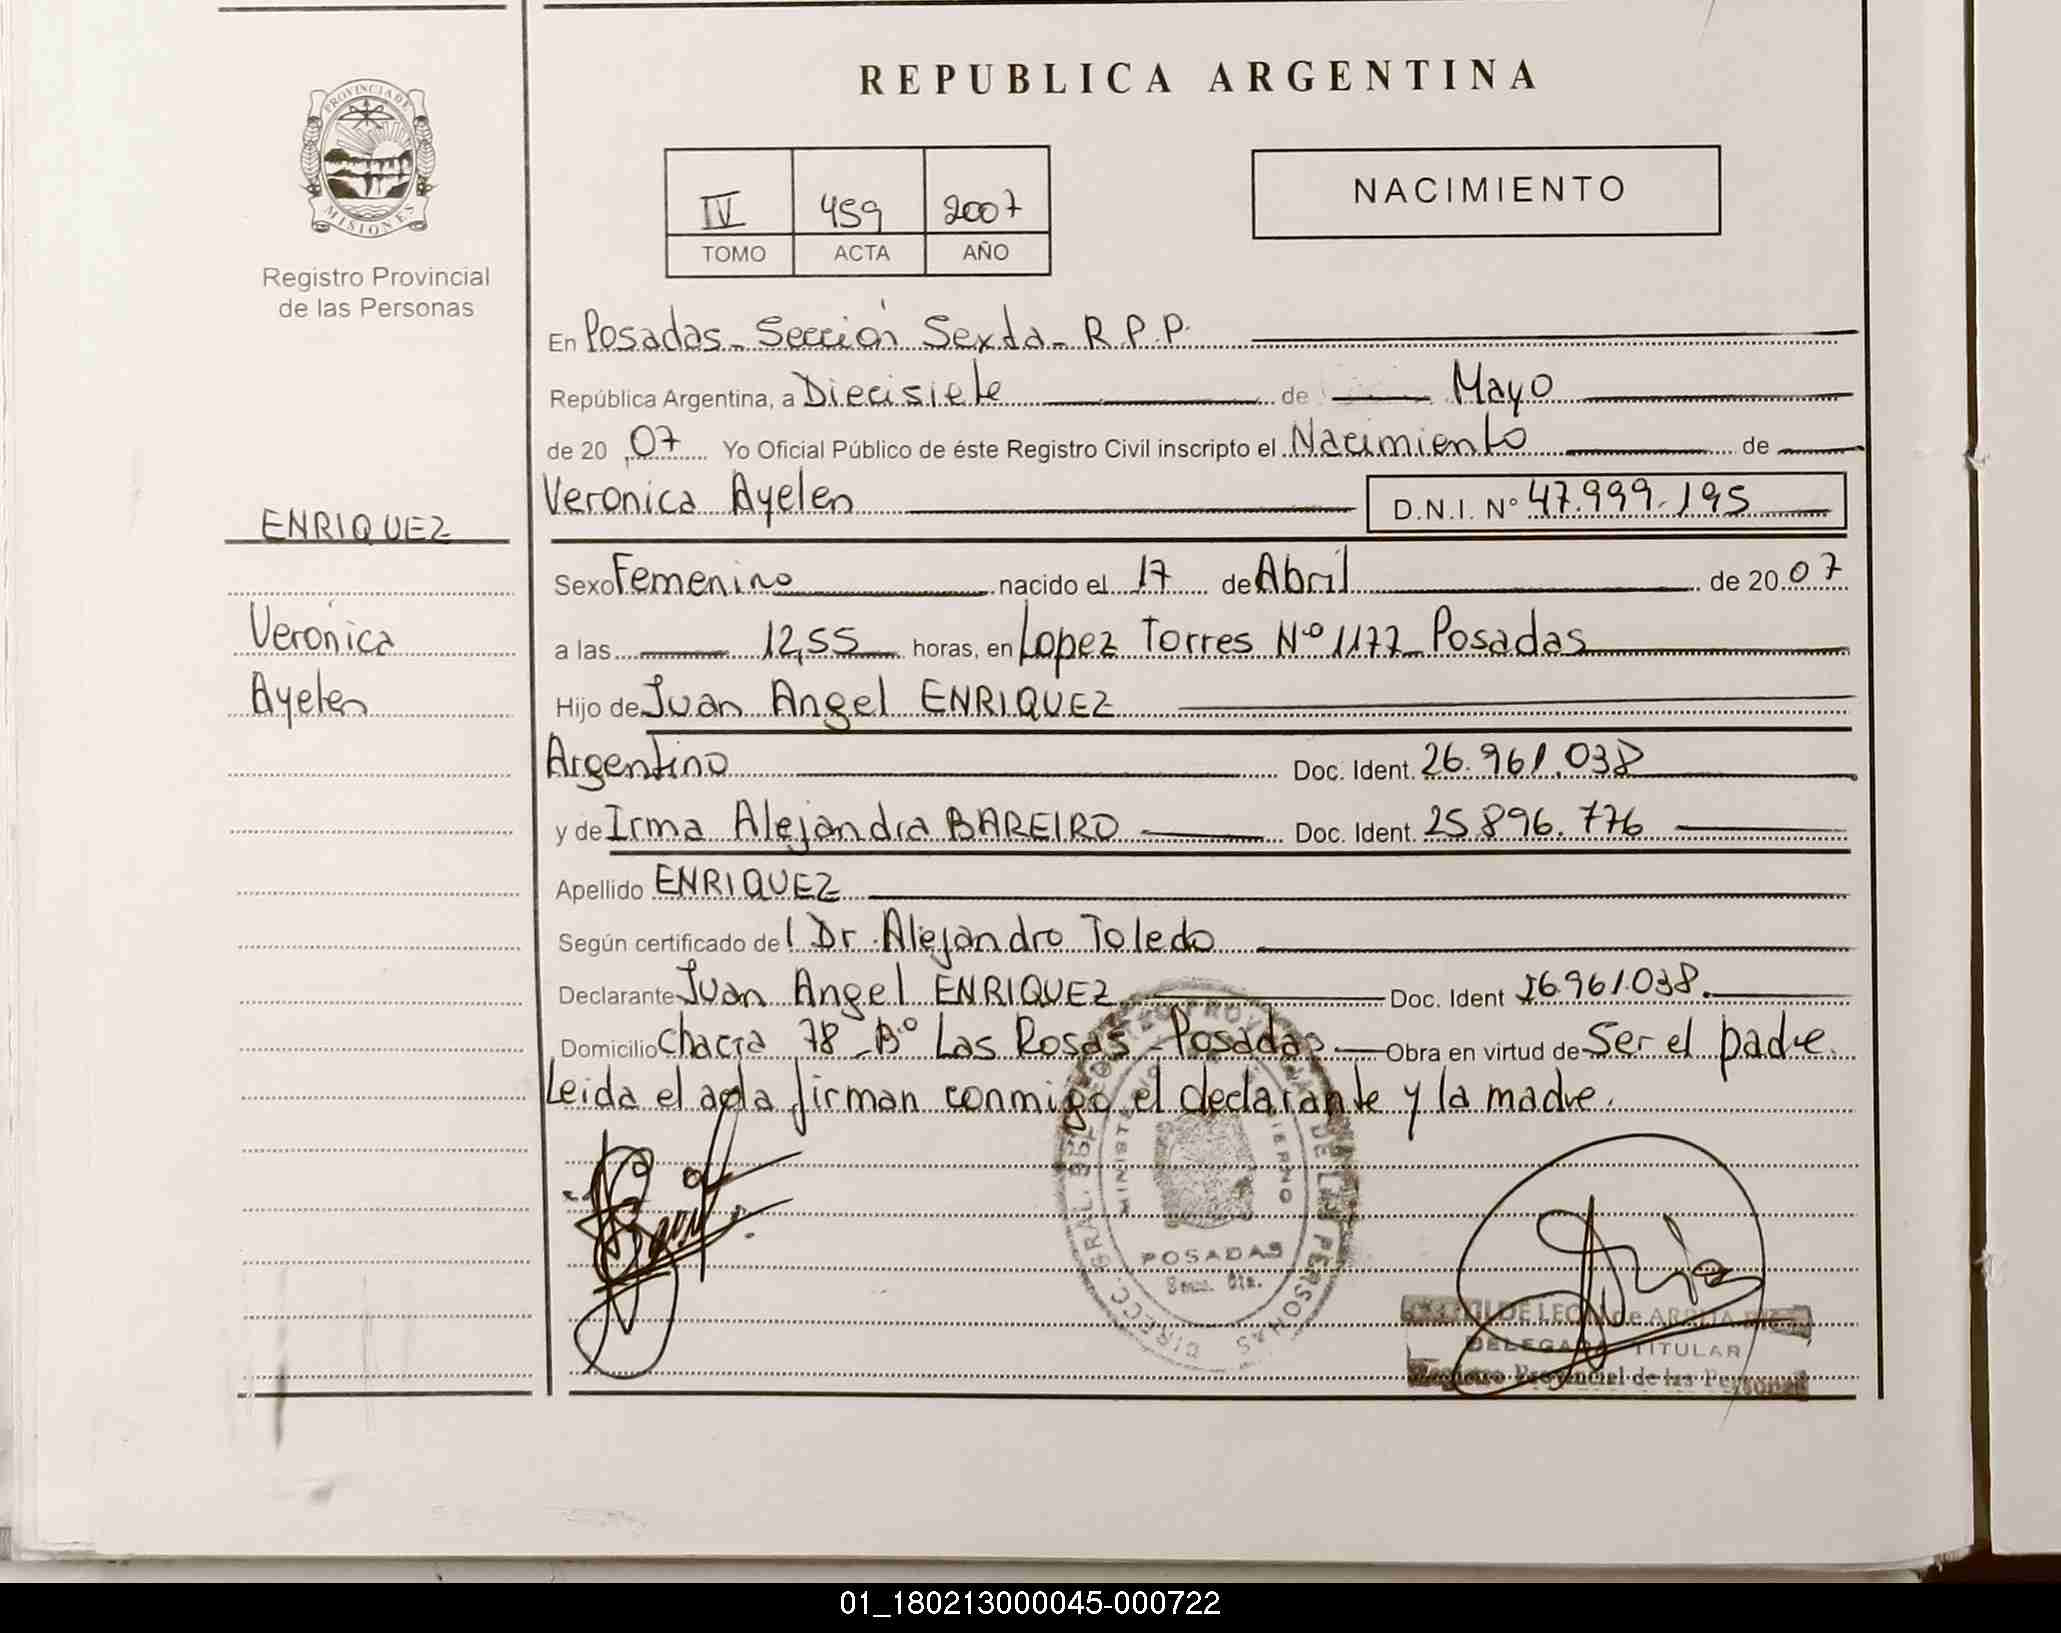 REPUBLICA ARGENTINA
PROVINCIA DE
MISIONES
Registro Provincial
de las Personas
IV 459 2007
TOMO ACTA AÑO
NACIMIENTO
En Posadas - Sección Sexta - R.P.P.
República Argentina, a Diecisiete de Mayo
de 20 07 Yo Oficial Público de éste Registro Civil inscripto el Nacimiento de
Veronica Ayelen D.N.I. Nº 47.999.195
ENRIQUEZ
Veronica
Ayelen
Sexo Femenino nacido el 17 de Abril de 20 07
a las 12,55 horas, en Lopez Torres Nº 1177 - Posadas
Hijo de Juan Angel ENRIQUEZ
Argentino Doc. Ident. 26.961.038
y de Irma Alejandra BAREIRO Doc. Ident. 25.896.776
Apellido ENRIQUEZ
Según certificado del Dr. Alejandro Toledo
Declarante Juan Angel ENRIQUEZ Doc. Ident 26.961.038.
Domicilio Chacra 78 - Bº Las Rosas - Posadas Obra en virtud de Ser el padre.
Leida el acta firman conmigo el declarante y la madre.
DIRECC. GRAL. DE LAS PERSONAS
POSADAS
Secc. 6ta.
DE LEON de
DELEGADA TITULAR
Registro Provincial de las Personas
01_180213000045-000722